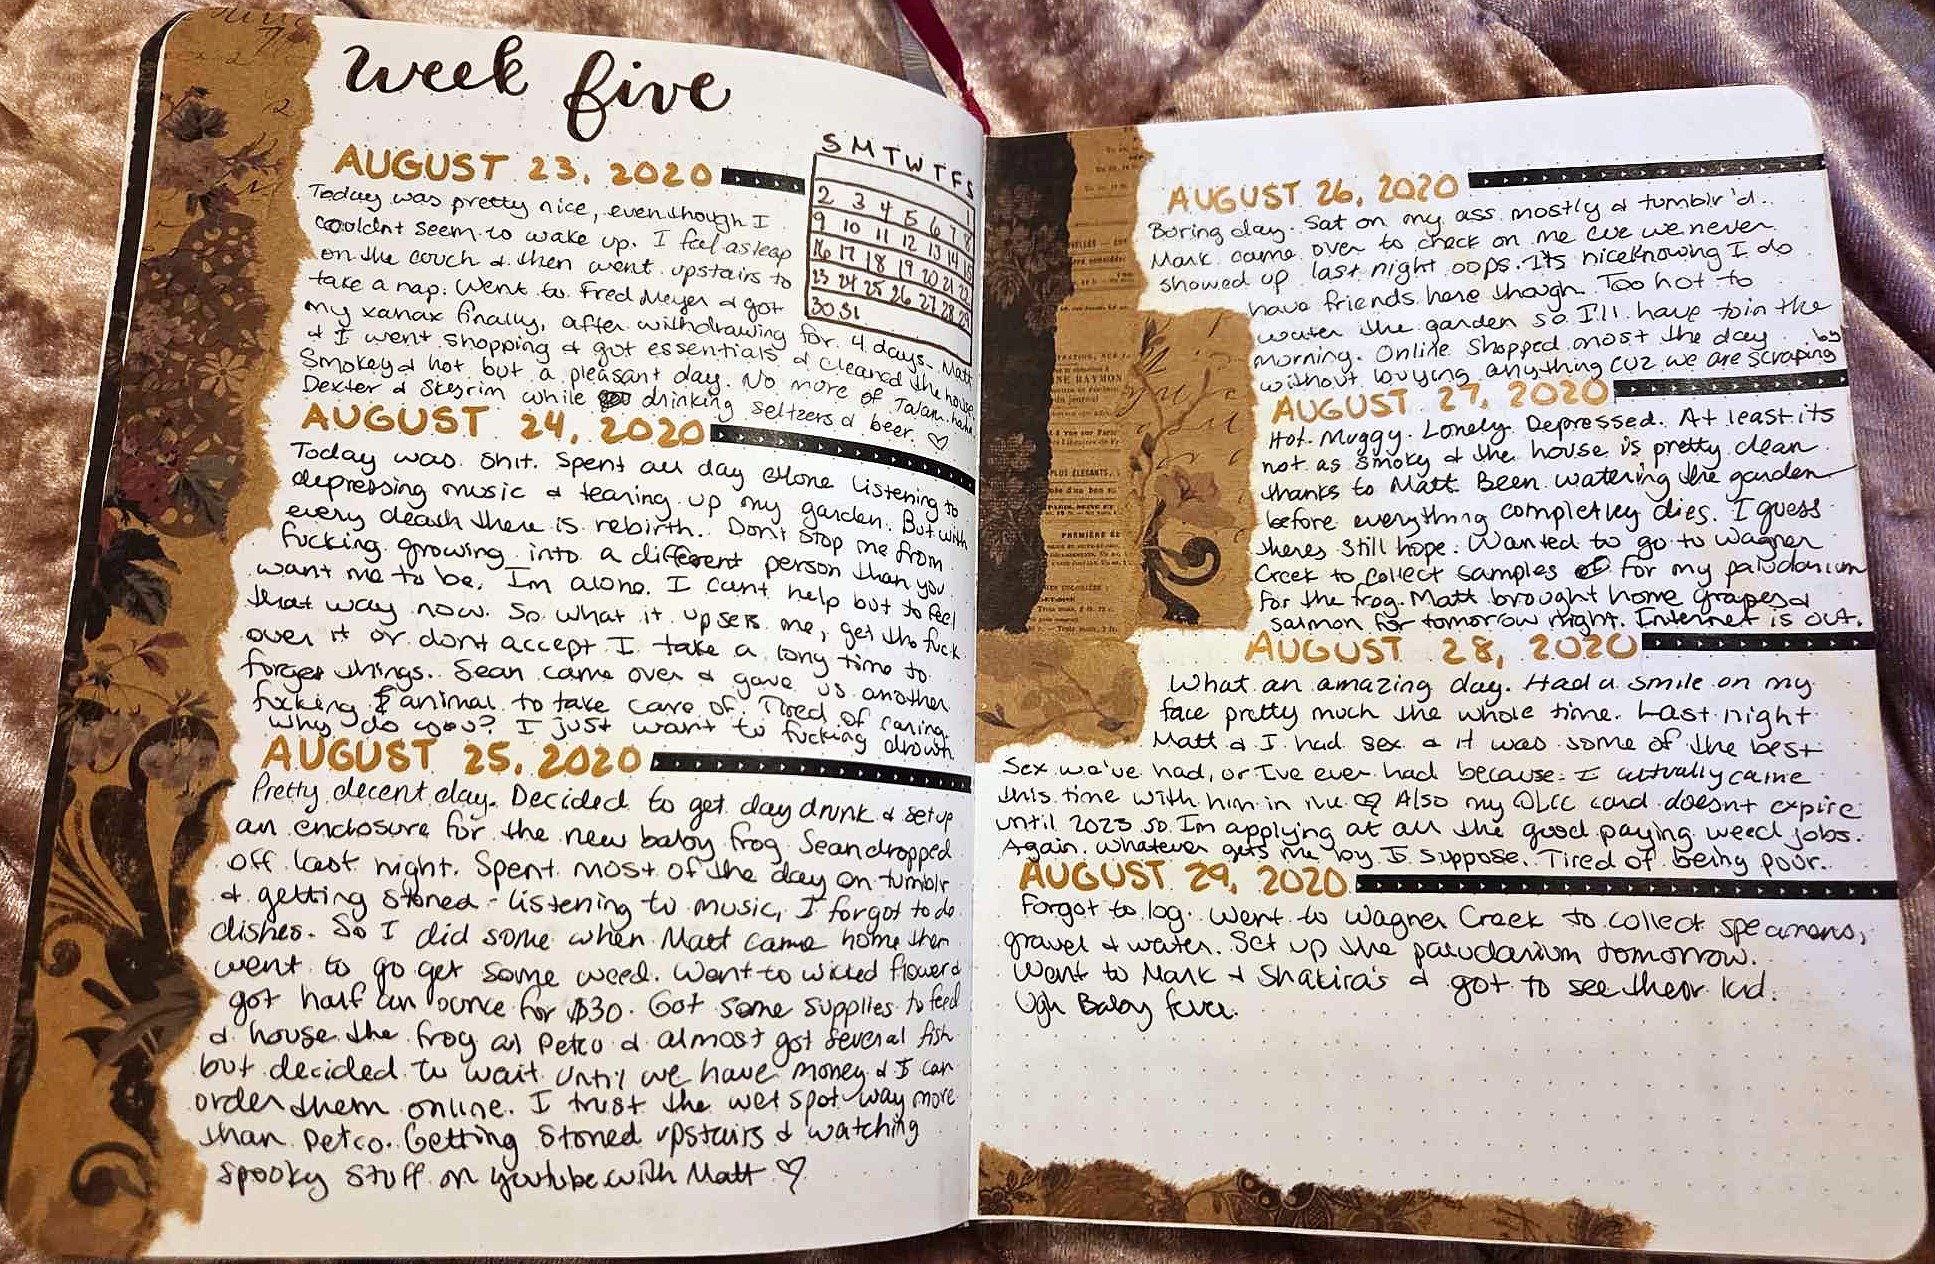 week five
S M T W T F S
1
2 3 4 5 6 7 8
9 10 11 12 13 14 15
16 17 18 19 20 21 22
23 24 25 26 27 28 29
30 31
AUGUST 23, 2020
Today was pretty nice, even though I
couldnt seem to wake up. I fell asleep
on the couch & then went upstairs to
take a nap. Went to Fred Meyer & got
my xanax finally, after withdrawing for 4 days. Matt
& I went shopping & got essentials & cleaned the house
Smokey & hot but a pleasant day. No more of Talam haha
Dexter & Skyrim while drinking seltzers & beer. ♡
AUGUST 24, 2020
Today was shit. Spent all day alone listening to
depressing music & tearing up my garden. But with
every death there is rebirth. Don't stop me from
fucking growing into a different person than you
want me to be. Im alone. I cant help but to feel
that way now. So what it upsets me, get the fuck
over it or dont accept I take a long time to
forget things. Sean came over & gave us another
fucking animal to take care of. Tired of caring.
Why do you? I just want to fucking drown
AUGUST 25, 2020
Pretty decent day. Decided to get day drunk & setup
an enclosure for the new baby frog Sean dropped
off last night. Spent most of the day on tumblr
& getting stoned - listening to music, I forgot to do
dishes. So I did some when Matt came home then
went to go get some weed. Went to wicked flower &
got half an ounce for $30. Got some supplies to feed
& house the frog at Petco & almost got several fish
but decided to wait until we have money & I can
order them online. I trust the wet spot way more
than Petco. Getting stoned upstairs & watching
spooky stuff on youtube with Matt ♡
AUGUST 26, 2020
Boring day. Sat on my ass mostly & tumblr'd..
Mark came over to check on me cuz we never
showed up last night oops. Its nice knowing I do
have friends here though. Too hot to
water the garden so I'll have to in the
morning. Online shopped most the day
without buying anything cuz we are scraping by
AUGUST 27, 2020
Hot. Muggy. Lonely. Depressed. At least its
not as smoky & the house is pretty clean
thanks to Matt. Been watering the garden
before everything completley dies. I guess
theres still hope. Wanted to go to Wagner
Creek to collect samples for my paludarium
for the frog. Matt brought home grapes &
salmon for tomorrow night. Internet is out.
AUGUST 28, 2020
What an amazing day. Had a smile on my
face pretty much the whole time. Last night
Matt & I had sex & it was some of the best
sex we've had, or I've ever had because I actually came
this time with him in me ♡ Also my OLCC card doesnt expire
until 2023 so Im applying at all the good paying weed jobs.
Again. Whatever gets me by I suppose. Tired of being poor.
AUGUST 29, 2020
Forgot to log. Went to Wagner Creek to collect speamens,
gravel & water. Set up the paludarium tomorrow.
Went to Mark & Shakira's & got to see their kid.
Ugh Baby fever.